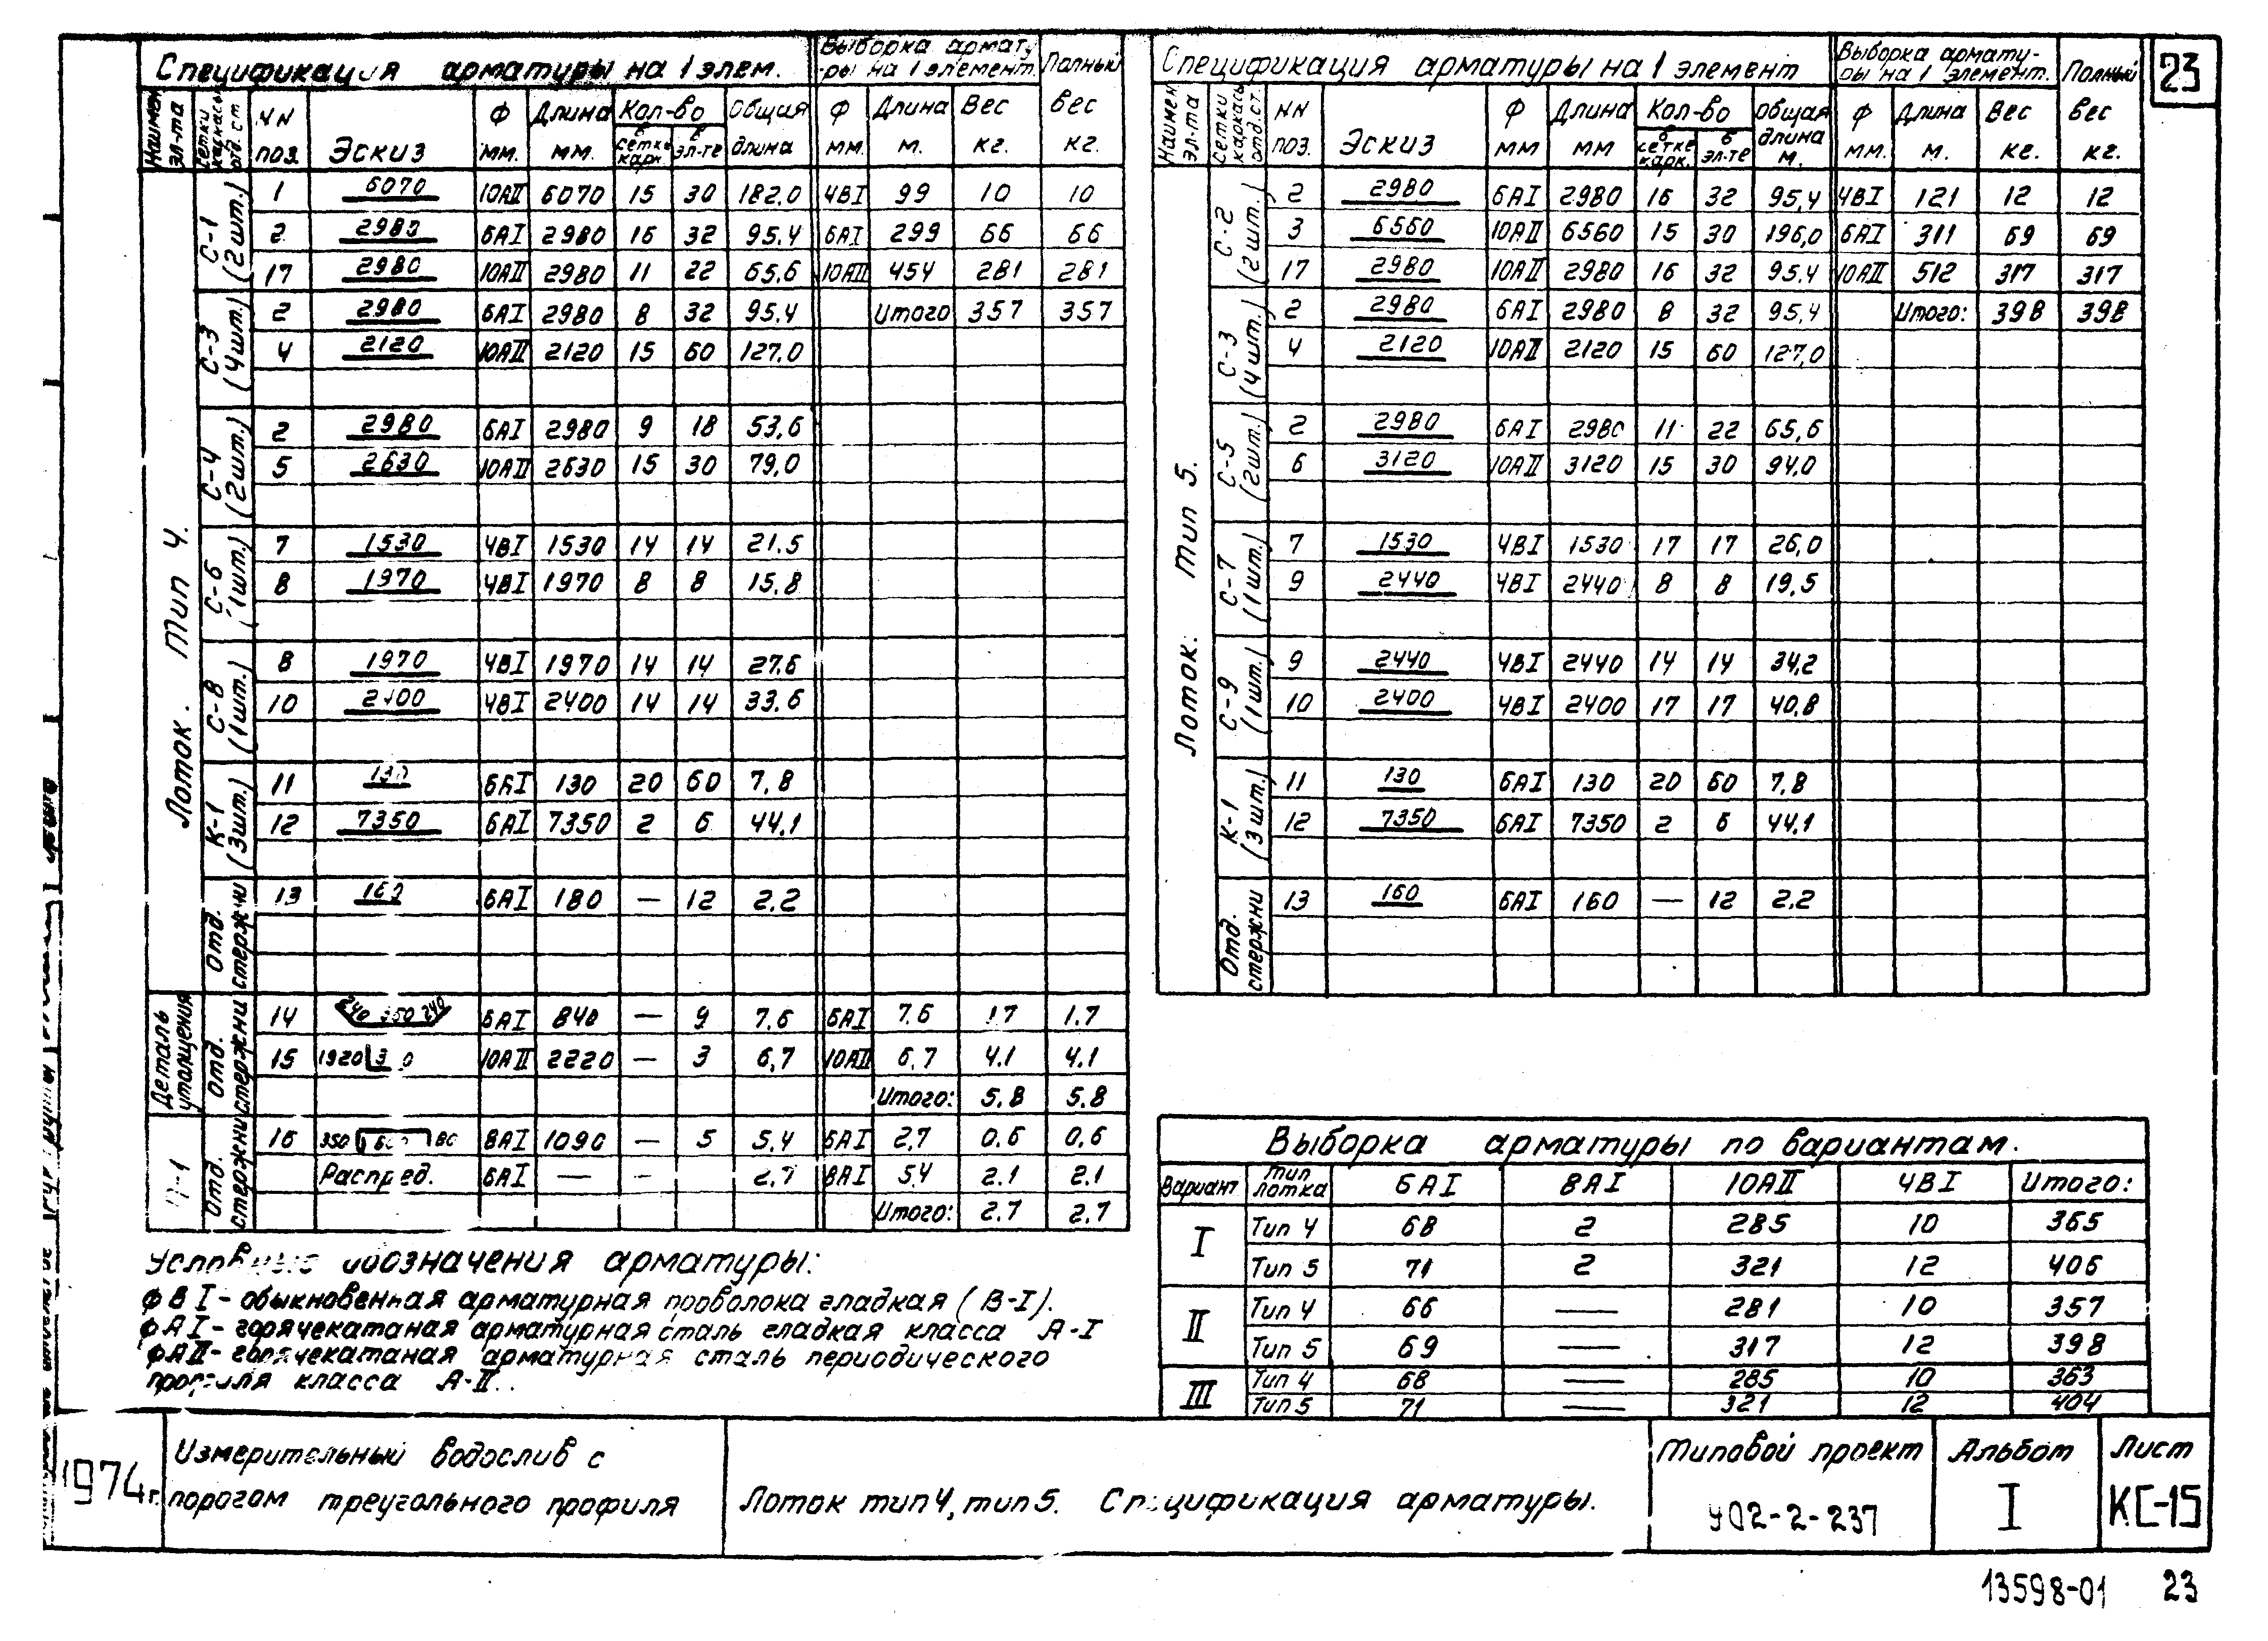 Спецификация арматуры на 1 элем. Выборка армату-ры на 1 элемент. Полный вес кг.
Наимен эл-та Сетки каркасы отд. ст NN поз. Эскиз Ф мм. Длина мм. Кол-во в сетке карк. в эл-те Общая длина Ф мм. Длина м. Вес кг.
Лоток. Тип 4.
С-1 (2шт.) 1 6070 10АII 6070 15 30 182,0 4ВI 99 10 10
2 2980 6АI 2980 16 32 95.4 6АI 299 66 66
17 2980 10АII 2980 11 22 65.6 10АII 454 281 281
С-3 (4шт.) 2 2980 6АI 2980 8 32 95.4 Итого 357 357
4 2120 10АII 2120 15 60 127,0
С-4 (2шт.) 2 2980 6АI 2980 9 18 53,6
5 2630 10АII 2630 15 30 79,0
С-6 (1шт.) 7 1530 4ВI 1530 14 14 21.5
8 1970 4ВI 1970 8 8 15,8
С-8 (1шт.) 8 1970 4ВI 1970 14 14 27.6
10 2400 4ВI 2400 14 14 33.6
К-1 (3шт.) 11 130 6АI 130 20 60 7,8
12 7350 6АI 7350 2 6 44,1
Отд. стержни 13 160 6АI 180 — 12 2.2
Деталь утолщения Отд. стержни 14 240 350 240 6АI 840 — 9 7.6 6АI 7.6 17 1.7
15 1920 10АII 2220 — 3 6,7 10АII 6,7 4.1 4.1
Итого: 5.8 5.8
Отд. стержни 16 350 8АI 1090 — 5 5.4 6АI 2,7 0.6 0,6
Распред. 6АI — - 2.7 8АI 5.4 2.1 2.1
Итого: 2.7 2.7
Условные обозначения арматуры:
ф В I - обыкновенная арматурная проволока гладкая (В-I).
ф А I - горячекатаная арматурная сталь гладкая класса А-I
ф А II - горячекатаная арматурная сталь периодического
профиля класса А-II.
Спецификация арматуры на 1 элемент Выборка армату-ры на 1 элемент. Полный вес кг.
23
Наимен эл-та Сетки каркасы отд.ст. NN поз. Эскиз Ф мм Длина мм Кол-во в сетке карк. в эл-те Общая длина м. Ф мм. Длина м. Вес кг.
Лоток. Тип 5.
С-2 (2шт.) 2 2980 6АI 2980 16 32 95,4 4ВI 121 12 12
3 6560 10АII 6560 15 30 196,0 6АI 311 69 69
17 2980 10АII 2980 16 32 95.4 10АII 512 317 317
С-3 (4шт.) 2 2980 6АI 2980 8 32 95,4 Итого: 398 398
4 2120 10АII 2120 15 60 127,0
С-5 (2шт.) 2 2980 6АI 2980 11 22 65,6
6 3120 10АII 3120 15 30 94,0
С-7 (1шт.) 7 1530 4ВI 1530 17 17 26,0
9 2440 4ВI 2440 8 8 19,5
С-9 (1шт.) 9 2440 4ВI 2440 14 14 34,2
10 2400 4ВI 2400 17 17 40,8
К-1 (3шт.) 11 130 6АI 130 20 60 7,8
12 7350 6АI 7350 2 6 44,1
Отд. стержни 13 160 6АI 160 — 12 2.2
Выборка арматуры по вариантам.
Вариант Тип лотка 6АI 8АI 10АII 4ВI Итого:
I Тип 4 68 2 285 10 365
Тип 5 71 2 321 12 406
II Тип 4 66 — 281 10 357
Тип 5 69 — 317 12 398
III Тип 4 68 — 285 10 363
Тип 5 71 — 321 12 404
1974г. Измерительный водослив с
порогом треугольного профиля
Лоток тип 4, тип 5. Спецификация арматуры.
Типовой проект
402-2-237
Альбом
I
Лист
КС-15
13598-01 23